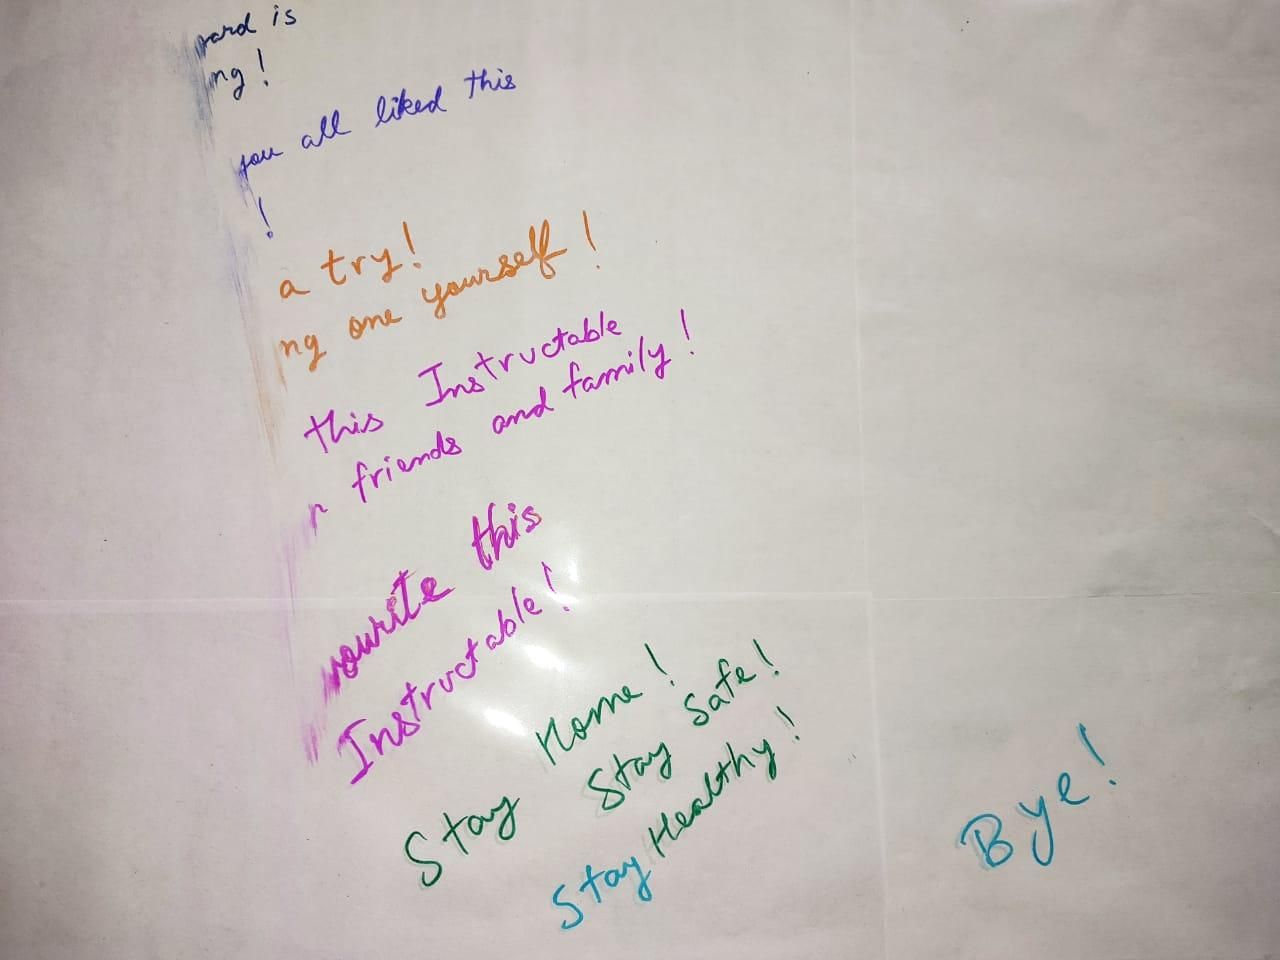 is
you all liked this
!
a try!
one yourself!
this Instructable
friends and family!
this
Instructable!
Stay Home!
Stay Safe!
Stay Healthy!
Bye!